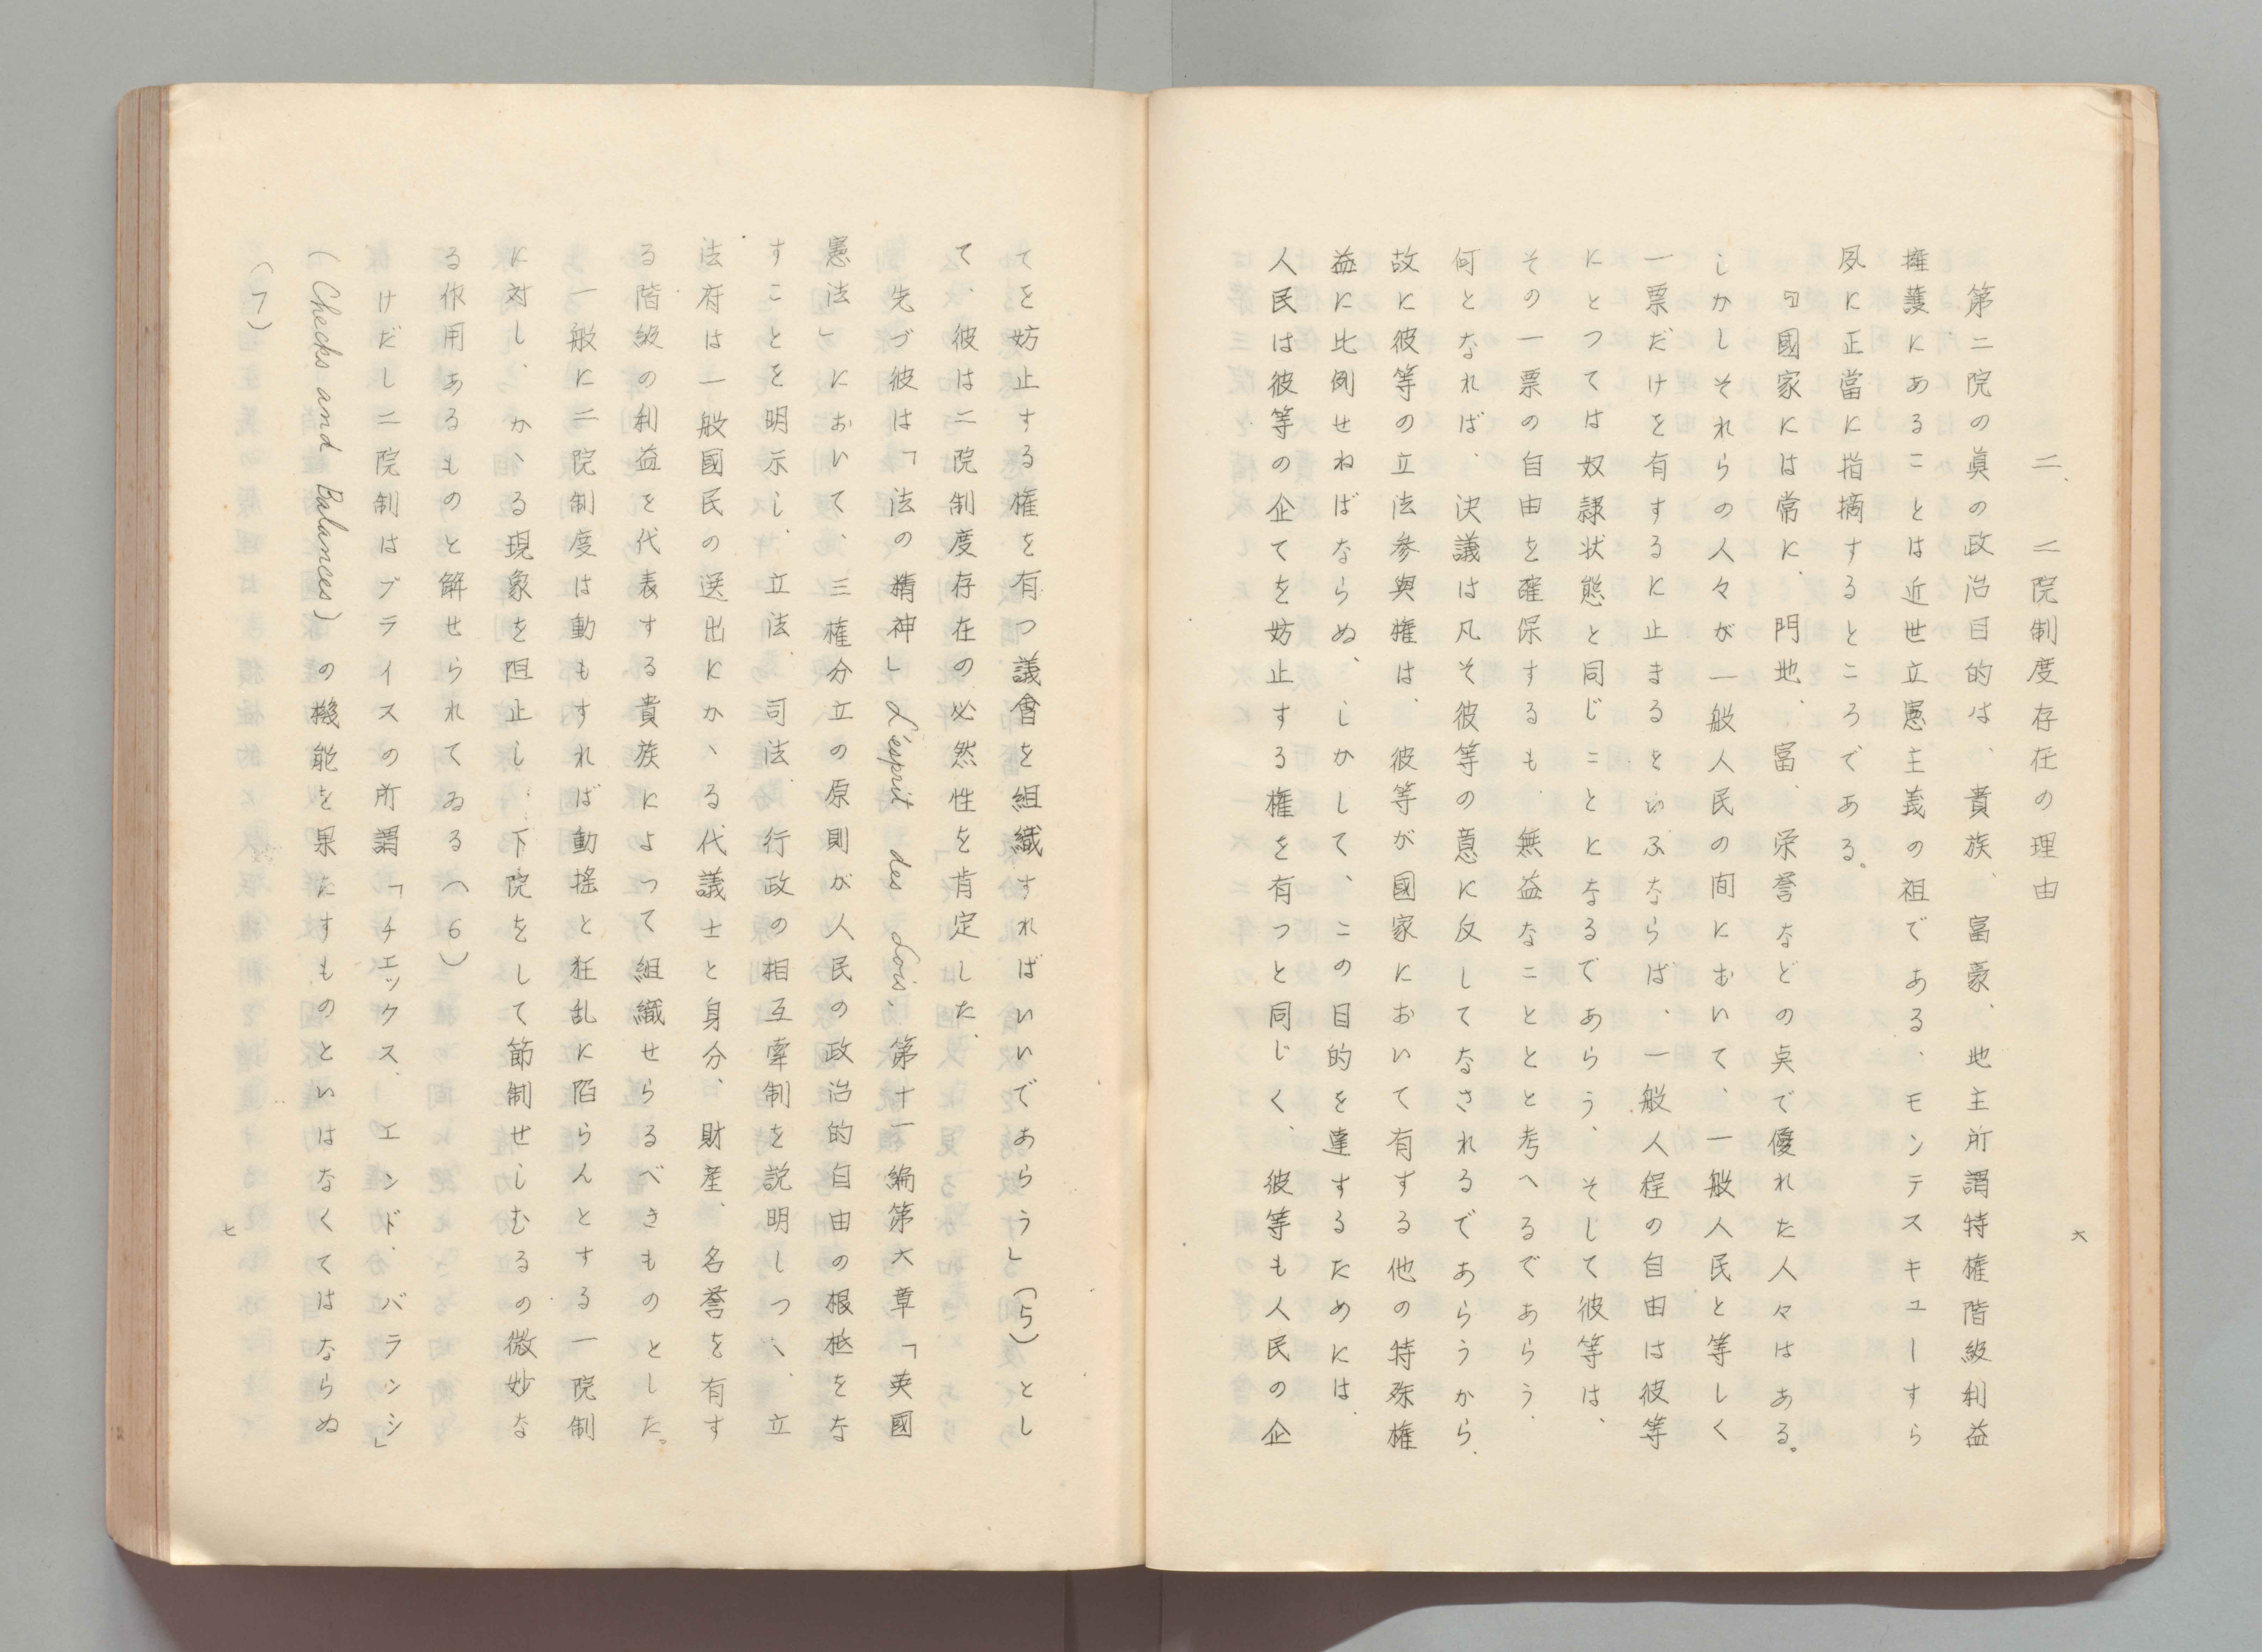 二、二院制度存在の理由
第二院の眞の政治目的は、貴族、富豪、地主所謂特権階級利益
擁護にあることは近世立憲主義の祖である、モンテスキューすら
夙に正當に指摘するところである。
『國家には常に、門地、富、栄誉などの点で優れた人々はある。
しかしそれらの人々が一般人民の间において、一般人民と等しく
一票だけを有するに止まるをいふならば、一般人程の自由は彼等
にとつては奴隷状態と同じことになるであらう、そして彼等は、
その一票の自由を確保するも、無益なことと考へるであらう、
何となれば、決議は凡そ彼等の意に反してなされるであらうから、
故に彼等の立法参與権は、彼等が國家において有する他の特殊権
益に比例せねばならぬ、しかして、この目的を達するためには、
人民は彼等の企てを妨止する権を有つと同じく、彼等も人民の企
六
てを妨止する権を有つ議會を組織すればいいであらう」(5)とし
て、彼は二院制度存在の必然性を肯定した、
先づ彼は「法の精神」L'esprit des Lois、第十一編第六章「英國
憲法」において、三権分立の原則が人民の政治的自由の根柢をな
すことを明示し、立法、司法、行政の相互牽制を説明しつヽ、立
法府は一般國民の選出にかヽる代議士と身分、財産、名誉を有す
る階級の利益を代表する貴族によつて組織せらるべきものとした。
一般に二院制度は動もすれば動搖と狂乱に陥らんとする一院制
に対し、かヽる現象を阻止し、下院をして節制せしむるの微妙な
る作用あるものと解せられてゐる(6)
けだし二院制はブライスの所謂「チエックス、エンド、バランシ」
(Checks and Balances)の機能を果たすものといはなくてはならぬ
(7)
七